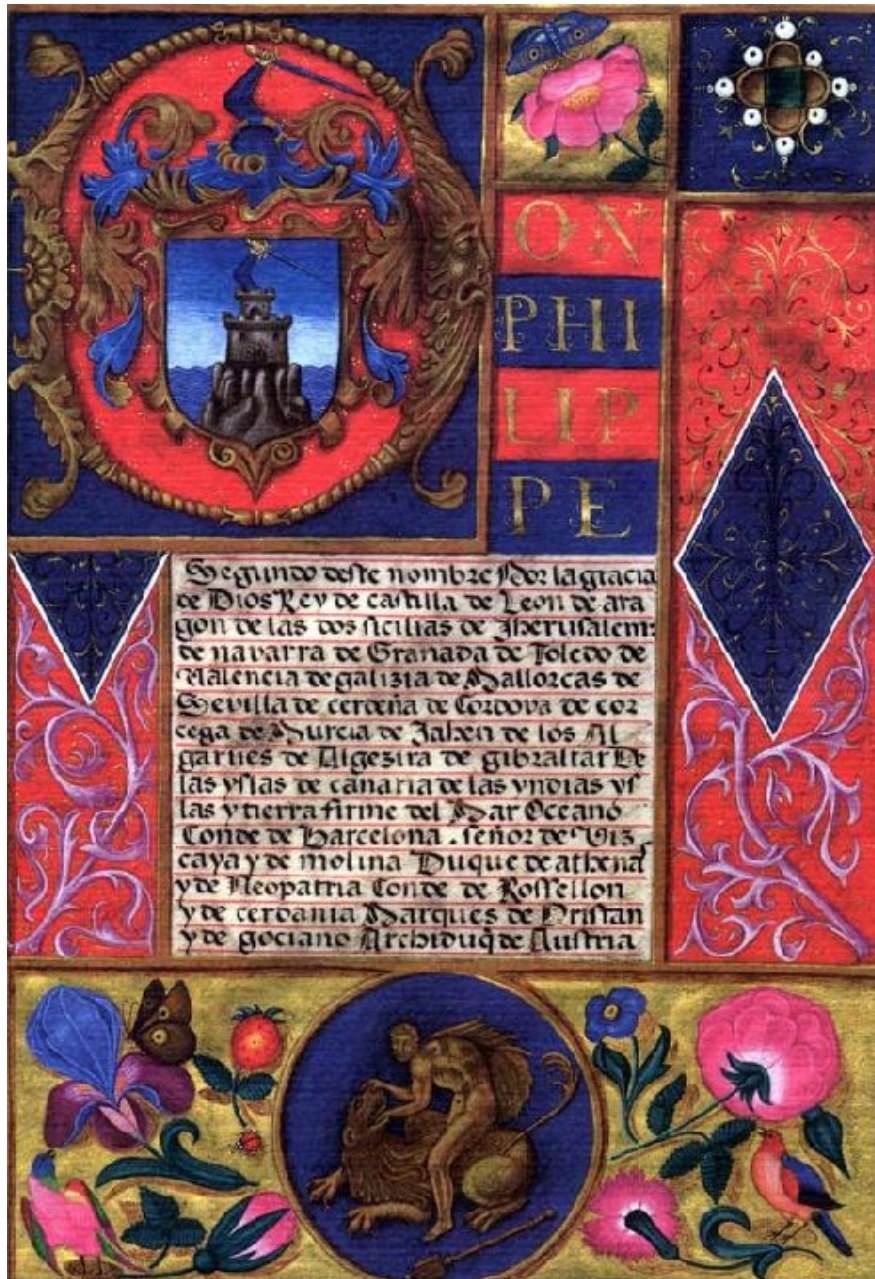 ON
PHI
LIP
PE
Segundo deste nombre Por la gracia
de Dios Rey de castilla de Leon de ara
gon de las dos sicilias de Jherusalem
de navarra de Granada de Toledo de
Valencia de galizia de Mallorcas de
Sevilla de cerdeña de Cordova de cor
cega de Murcia de Jahen de los Al
garues de Algezira de gibraltar De
las yslas de canaria de las yndias ys
las y tierra firme del Mar Oceano
Conde de Barcelona . señor de Viz
caya y de molina Duque de athenas
y de Neopatria Conde de Rossellon
y de cerdania Marques de Oristan
y de gociano Archiduq̃ de Austria